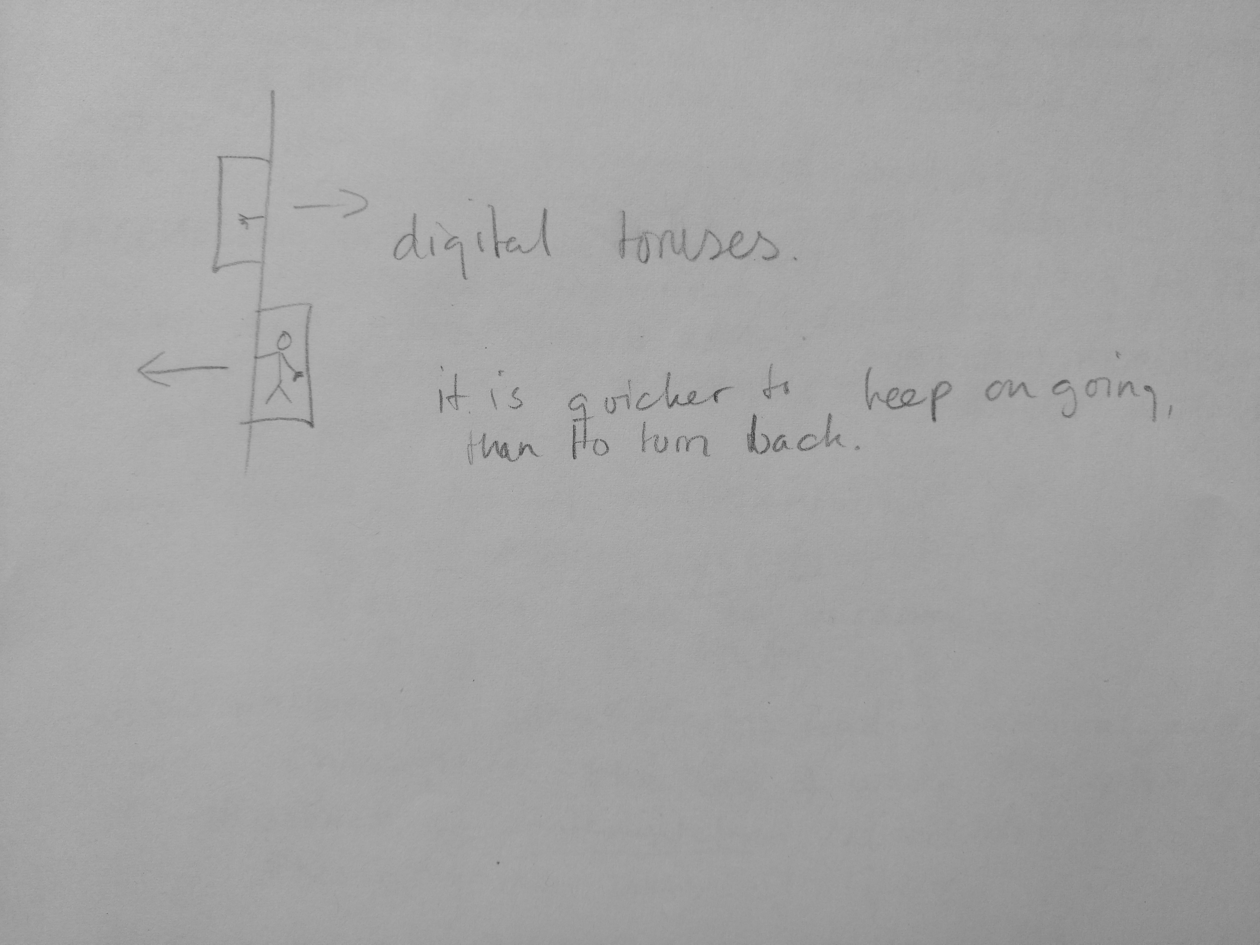 digital toruses.
it is quicker to keep on going,
than to turn back.